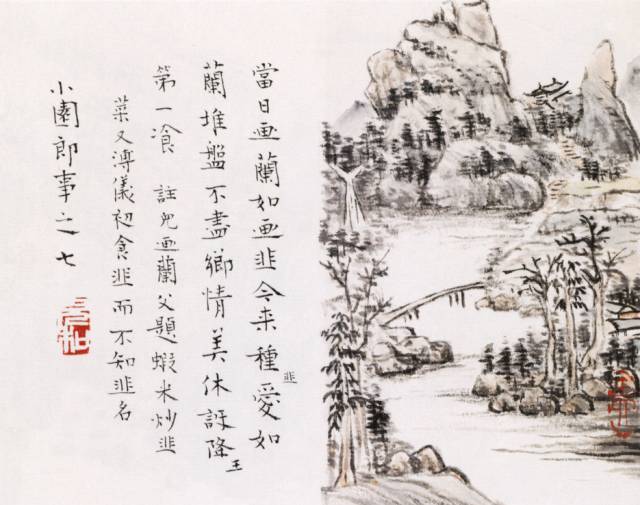 當日画蘭如画韭今来種韭愛如
蘭堆盤不盡鄉情美休訝降王
第一飡 註兒画蘭父題蝦米炒韭
菜又溥儀初食韭而不知韭名
小園即事之七